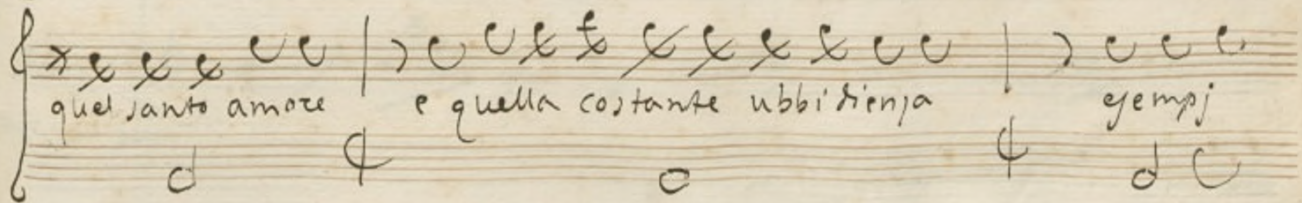 quel santo amore e quella costante ubbidienza esempj